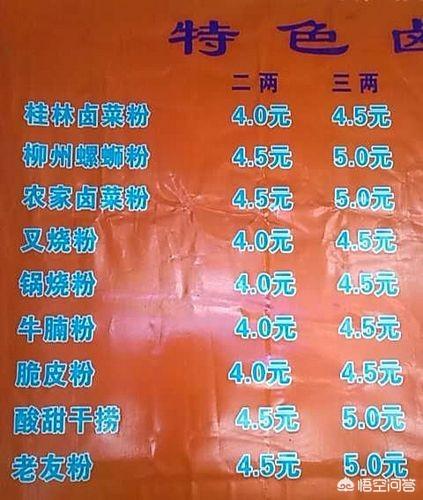 特色卤
二两 三两
桂林卤菜粉 4.0元 4.5元
柳州螺蛳粉 4.5元 5.0元
农家卤菜粉 4.5元 5.0元
叉烧粉 4.0元 4.5元
锅烧粉 4.0元 4.5元
牛腩粉 4.0元 4.5元
脆皮粉 4.0元 4.5元
酸甜干捞 4.5元 5.0元
老友粉 4.5元 5.0元
悟空问答